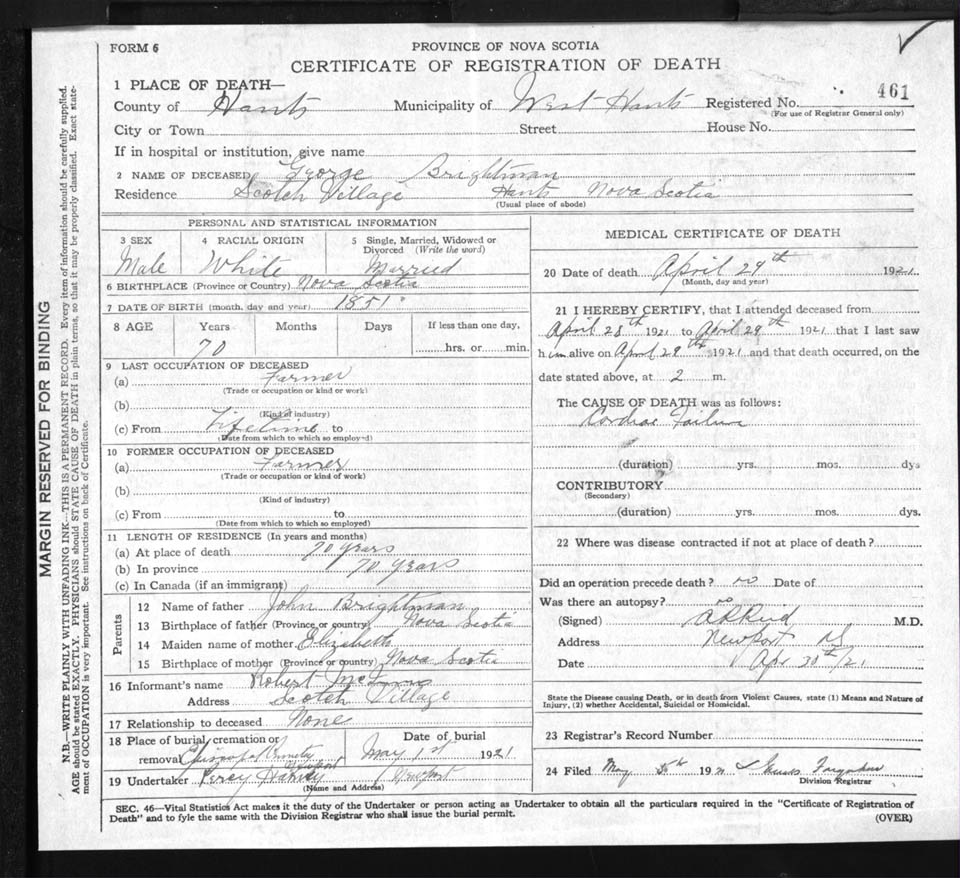 FORM 6
PROVINCE OF NOVA SCOTIA
CERTIFICATE OF REGISTRATION OF DEATH
1 PLACE OF DEATH—
County of Hants Municipality of West Hants Registered No. 461
(For use of Registrar General only)
City or Town Street House No.
If in hospital or institution, give name
2 NAME OF DECEASED George Brightman
Residence Scotch Village Hants Nova Scotia
(Usual place of abode)
PERSONAL AND STATISTICAL INFORMATION
3 SEX 4 RACIAL ORIGIN 5 Single, Married, Widowed or Divorced (Write the word)
Male White Married
6 BIRTHPLACE (Province or Country) Nova Scotia
7 DATE OF BIRTH (month, day and year) 1851
8 AGE Years Months Days If less than one day,
70 hrs. or min.
9 LAST OCCUPATION OF DECEASED
(a) Farmer
(Trade or occupation or kind or work)
(b)
(Kind of industry)
(c) From Lifetime to
(Date from which to which so employed)
10 FORMER OCCUPATION OF DECEASED
(a) Farmer
(Trade or occupation or kind of work)
(b)
(Kind of industry)
(c) From to
(Date from which to which so employed)
11 LENGTH OF RESIDENCE (In years and months)
(a) At place of death 70 years
(b) In province 70 years
(c) In Canada (if an immigrant)
Parents
12 Name of father John Brightman
13 Birthplace of father (Province or country) Nova Scotia
14 Maiden name of mother Elizabeth
15 Birthplace of mother (Province or country) Nova Scotia
16 Informant's name Robert
Address Scotch Village
17 Relationship to deceased None
18 Place of burial, cremation or removal Episcopal Newport
Date of burial May 1st 1921
19 Undertaker Percy Newport
(Name and Address)
MEDICAL CERTIFICATE OF DEATH
20 Date of death April 29th 1921.
(Month, day and year)
21 I HEREBY CERTIFY, that I attended deceased from
April 28th 1921 to April 29th 1921 that I last saw
him alive on April 29th 1921 and that death occurred, on the
date stated above, at 2 m.
The CAUSE OF DEATH was as follows:
Cardiac Failure
(duration) yrs. mos. dys
CONTRIBUTORY
(Secondary)
(duration) yrs. mos. dys.
22 Where was disease contracted if not at place of death?
Did an operation precede death? no Date of
Was there an autopsy? no
(Signed) M.D.
Address Newport NS
Date Apr 30th/21
State the Disease causing Death, or in death from Violent Causes, state (1) Means and Nature of
Injury, (2) whether Accidental, Suicidal or Homicidal.
23 Registrar's Record Number
24 Filed May 5th 1921
Division Registrar
SEC. 46—Vital Statistics Act makes it the duty of the Undertaker or person acting as Undertaker to obtain all the particulars required in the "Certificate of Registration of
Death" and to fyle the same with the Division Registrar who shall issue the burial permit.
(OVER)
MARGIN RESERVED FOR BINDING
N.B.—WRITE PLAINLY WITH UNFADING INK—THIS IS A PERMANENT RECORD. Every item of information should be carefully supplied.
AGE should be stated EXACTLY. PHYSICIANS should STATE CAUSE OF DEATH in plain terms, so that it may be properly classified. Exact state-
ment of OCCUPATION is very important. See instructions on back of Certificate.